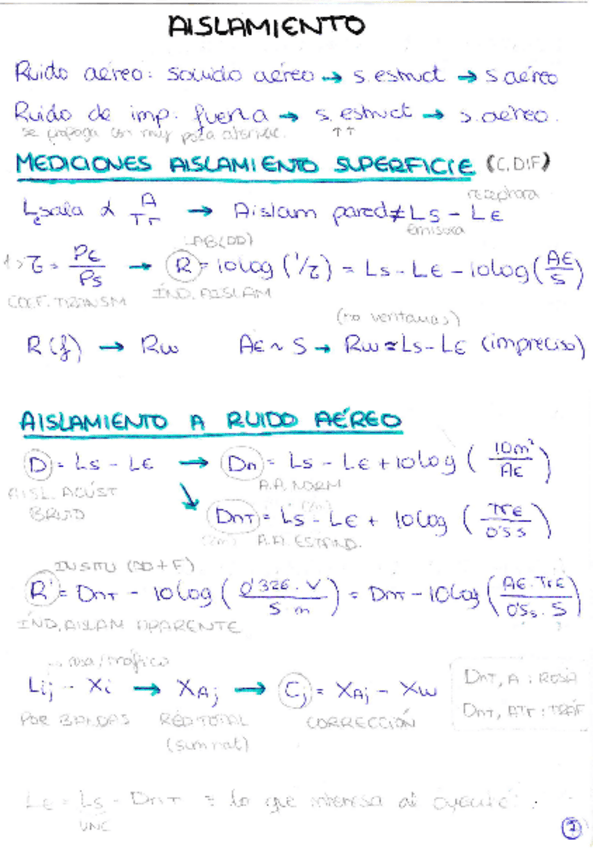 AISLAMIENTO
Ruido aéreo: sonido aéreo → s. estruct → s aéreo
Ruido de imp. fuerza → s. estruct → s. aereo.
se propaga con muy poca atenuac. ↑↑
MEDICIONES AISLAMIENTO SUPERFICIE (C.DIF)
receptora
Le sala α A/Tr → Aislam pared ≠ Ls - LE
emisora
LAB (DD)
1 > τ = PE/PS → R = 10 log (1/τ) = Ls - LE - 10log (AE/S)
COEF. TRANSM ÍND. AISLAM
(no ventanas)
R(f) → Rw AE ~ S → Rw ≈ Ls - LE (impreciso)
AISLAMIENTO A RUIDO AÉREO
D = Ls - LE → Dn = Ls - LE + 10log (10m²/AE)
AISL. ACÚST A.A. NORM
BRUTO DnT = Ls - LE + 10log (TrE/0'5 s)
A.A. ESTAND.
IN SITU (DD + F)
R' = DnT - 10log (0'326 · V/S m) = DnT - 10log (AE · TrE/0'5s · S)
ÍND. AISLAM APARENTE
rosa/tráfico
Lij - Xi → XAj → Cj = XAj - Xw
POR BANDAS RED TOTAL CORRECCIÓN
(sum nat)
DnT,A : ROSA
DnT,ATr : TRÁF
LE = Ls - DnT = lo que interesa al oyente
UNE
1